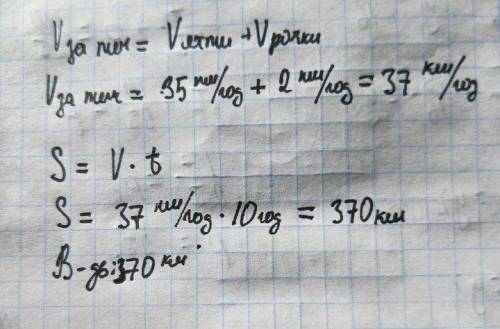 V за теч = V яхти + V річки
V за теч = 35 км/год + 2 км/год = 37 км/год
S = V · t
S = 37 км/год · 10 год = 370 км
В-дь: 370 км.